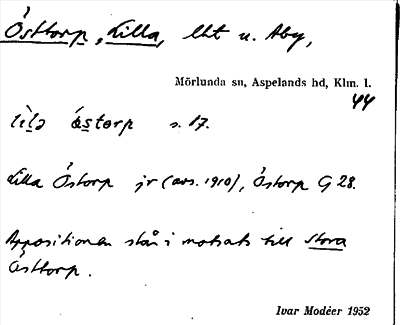 Östtorp, Lilla, lht u. Åby,
Mörlunda sn, Aspelands hd, Klm. l.
44
lìlə ǿstərp s. 17.
Lilla Östorp jr (avs. 1910), Östorp G 28.
Appositionen står i motsats till Stora
Östtorp.
Ivar Modéer 1952